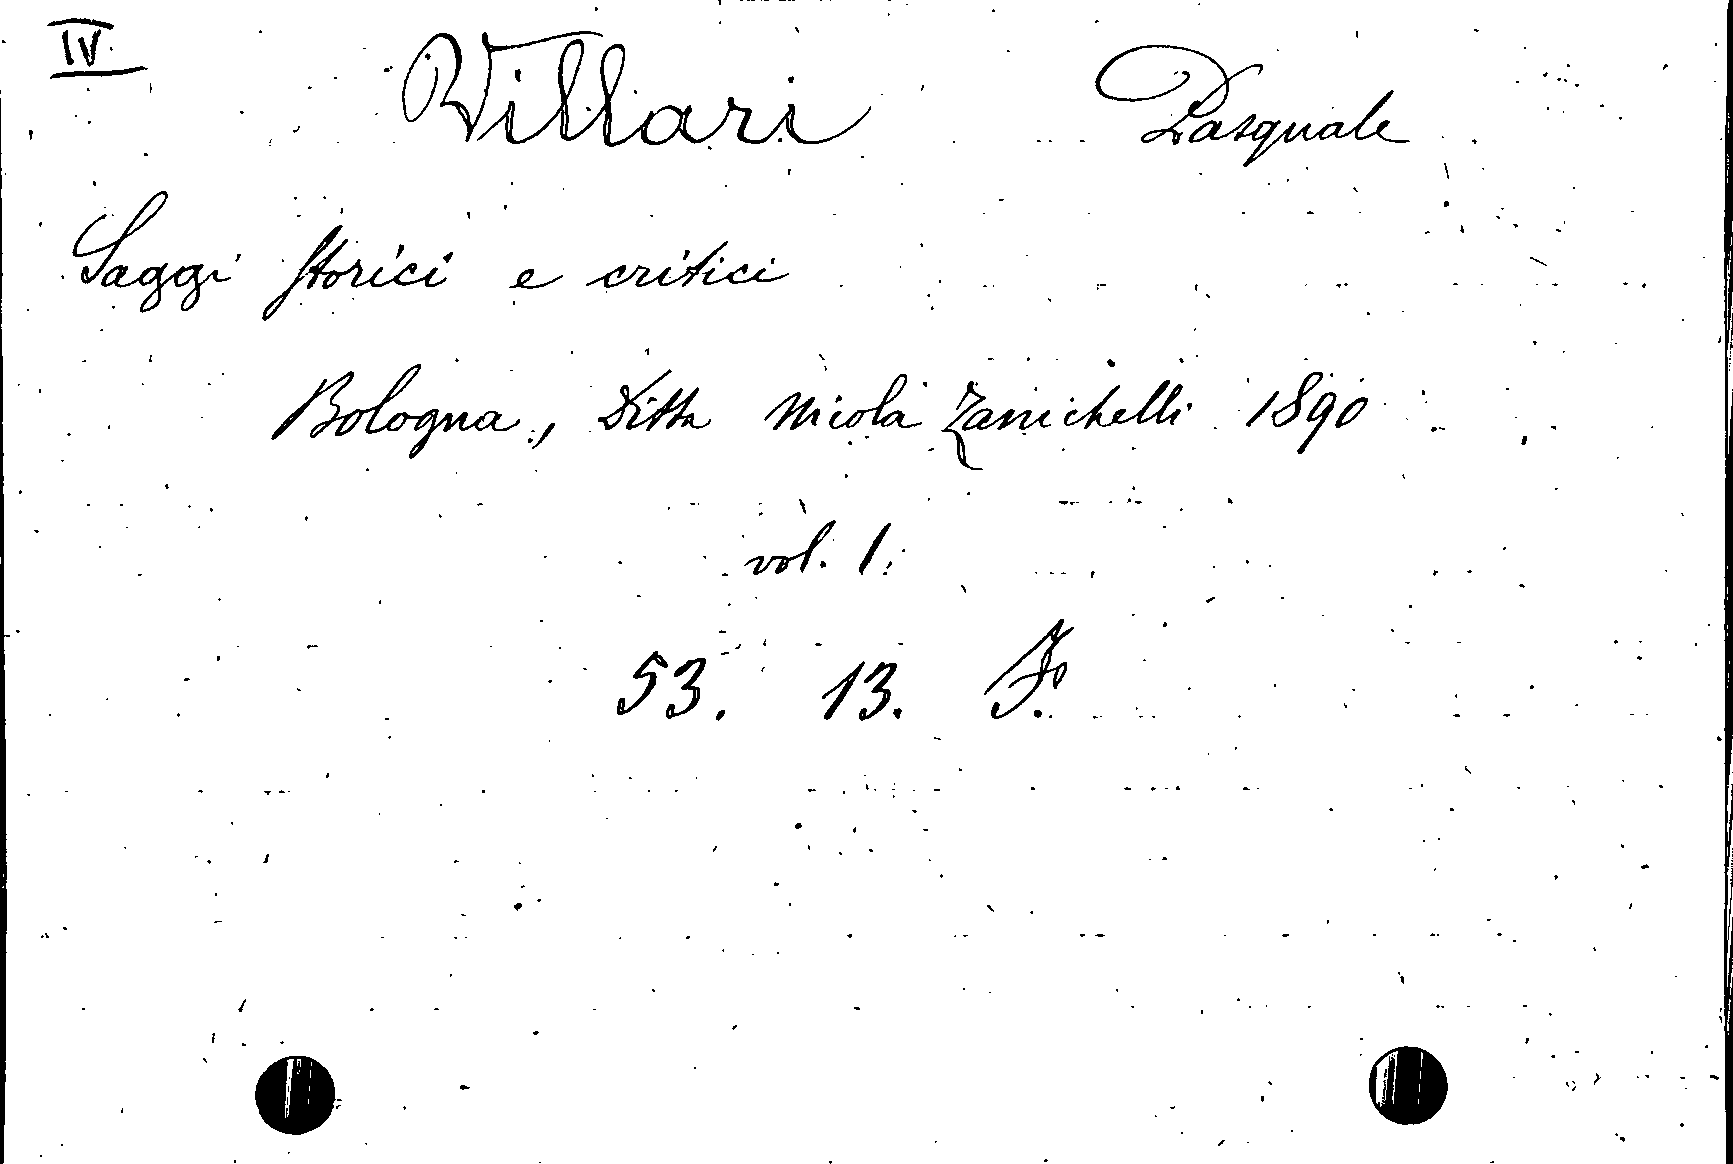 IV
Villari Pasquale
Saggi storici e critici
Bologna, Ditta Nicola Zanichelli 1890
vol. 1.
53. 13. F.